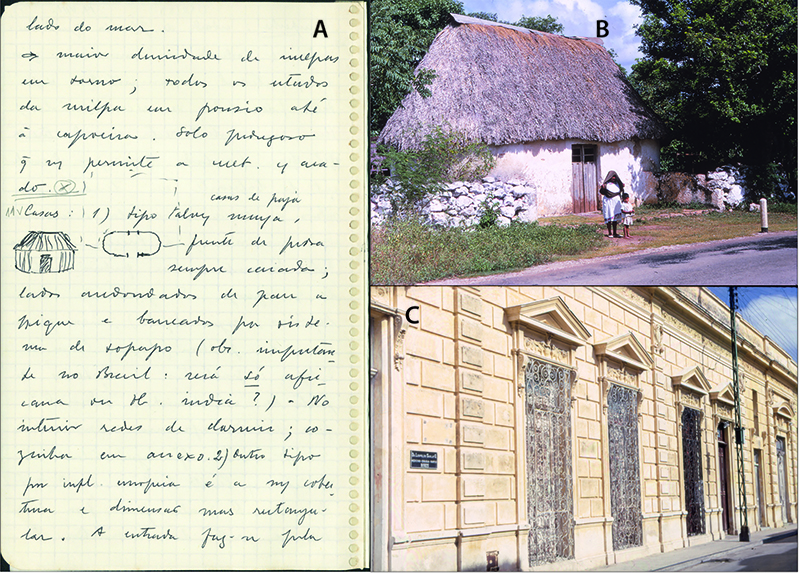 A
lado do mar.
⇒ maior densidade de milpas
em torno; todos os estados
da milpa em pousio até
à capoeira. Solo pedregoso
permite a ara-
do. (x)
casas de paja
Casas: 1) tipo talvez maya,
frente de pedra
sempre caiada;
lados arredondados de pau a
pique e barreados por siste-
ma de sopapo (obs. importan-
te no Brasil: será só afri-
cana ou tb. india?) - No
interior redes de dormir; co-
zinha em anexo. 2) Outro tipo
por infl. europeia é a cober-
tura e mas rectangu-
lar. A entrada faz-se pela
B
C